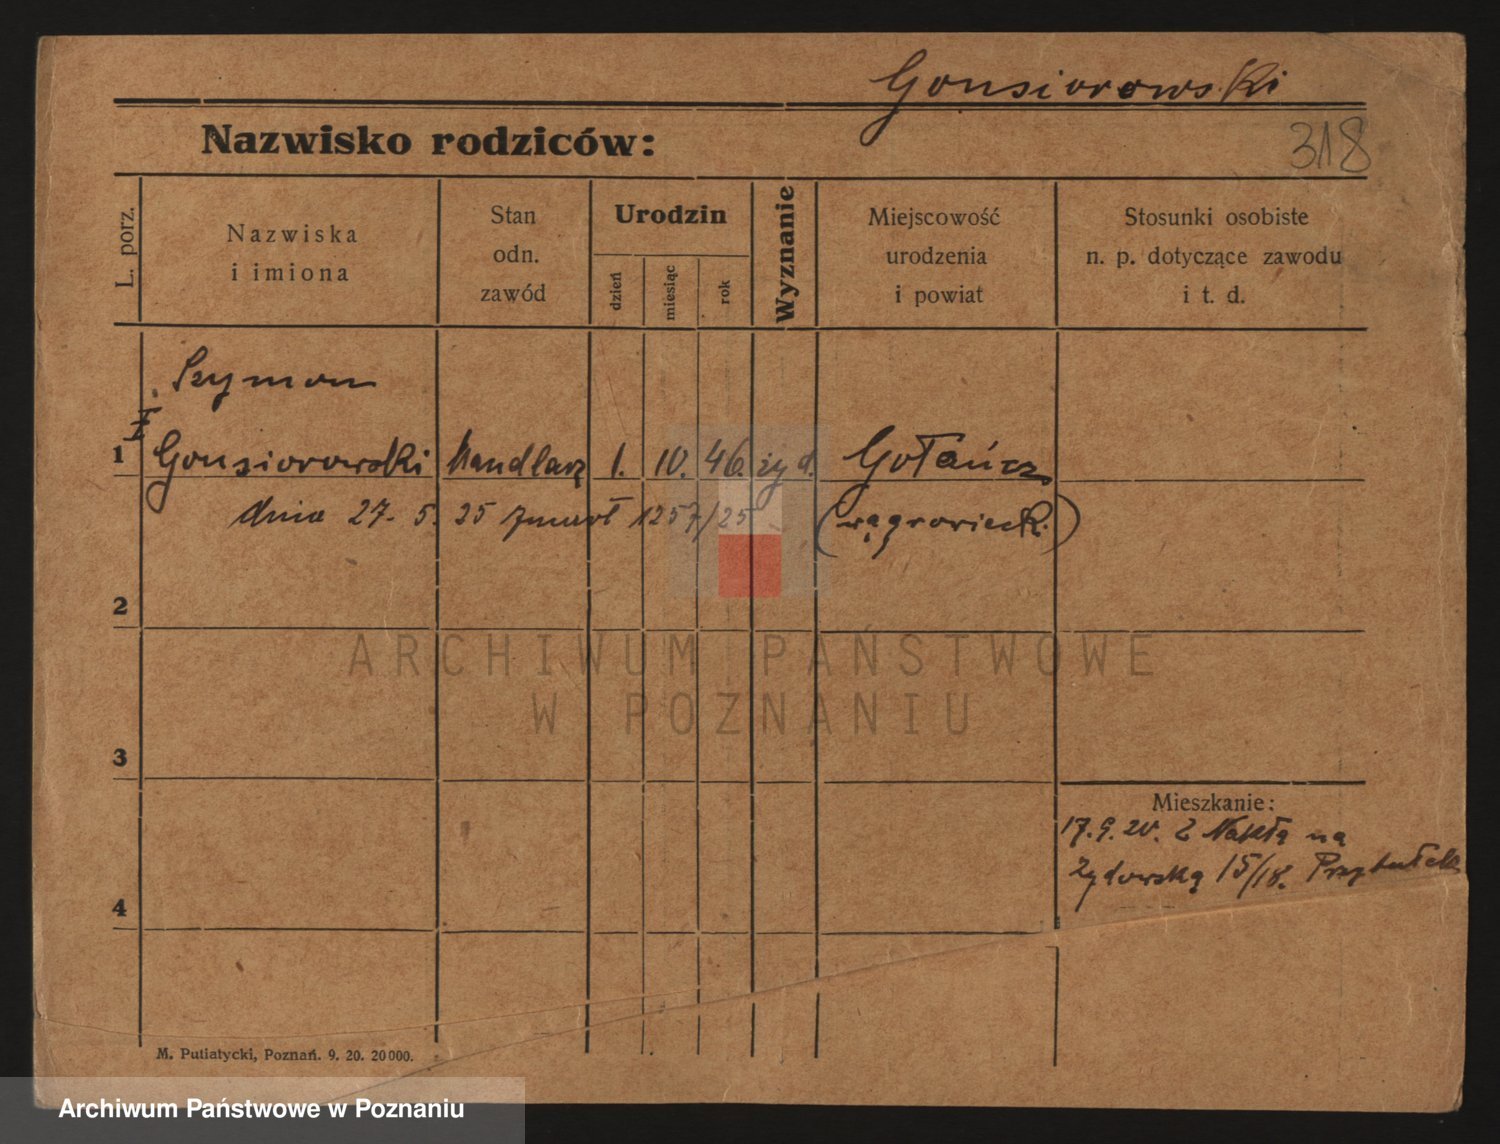 Gonsiorowski
318
Nazwisko rodziców:
L. porz.
Nazwiska
i imiona
Stan
odn.
zawód
Urodzin
dzień
miesiąc
rok
Wyznanie
Miejscowość
urodzenia
i powiat
Stosunki osobiste
n. p. dotyczące zawodu
i t. d.
Szymon
I
1 Gonsiorowski handlarz 1. 10. 46. żyd. Gołańcz
dnia 27. 5. 25 zmarł 1257/25 (wągrowieck.)
2
ARCHIWUM PAŃSTWOWE
W POZNANIU
3
Mieszkanie:
17.9.20. Z Nakła na
Żydowską 15/18. Przytułek
4
M. Putiatycki, Poznań. 9. 20. 20000.
Archiwum Państwowe w Poznaniu